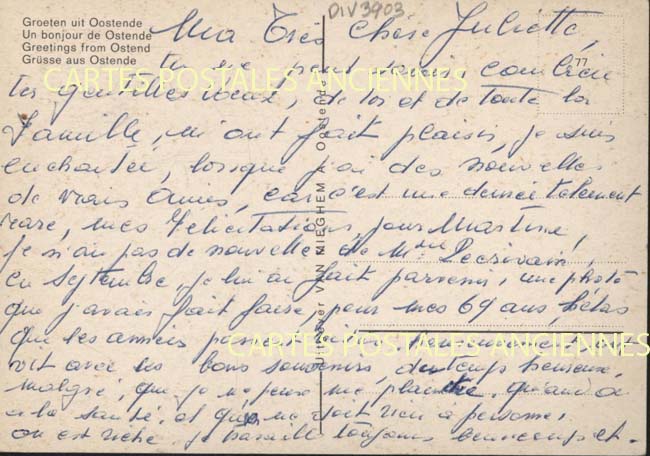 DIV3903
Groeten uit Oostende
Un bonjour de Ostende
Greetings from Ostend
Grüsse aus Ostende
77
CARTES POSTALES ANCIENNES
VAN MIEGHEM A Oostende
CARTES POSTALES ANCIENNES
Ma Très Chère Juliette,
tu ne peut savoir combien
tes gentilles voeux, de toi et de toute la
famille, m'ont fait plaisir, je suis
enchantée, lorsque j'ai des nouvelles
de vrais Amies, car c'est une denrée telement
rare, mes félicitations, pour Martine,
je n'ai pas de nouvelle de Mme Decrivain,
en septembre, je lui ai fait parvenir, une photo
que j'avais fait faire, pour mes 69 ans, hélas
que les années passent
vit avec les bons souvenirs du temps heureux,
malgré, que je ne peux me plaindre, quand on
a la santé, et qu'on ne doit rien a personne,
on est riche je travaille toujours beaucoup et.